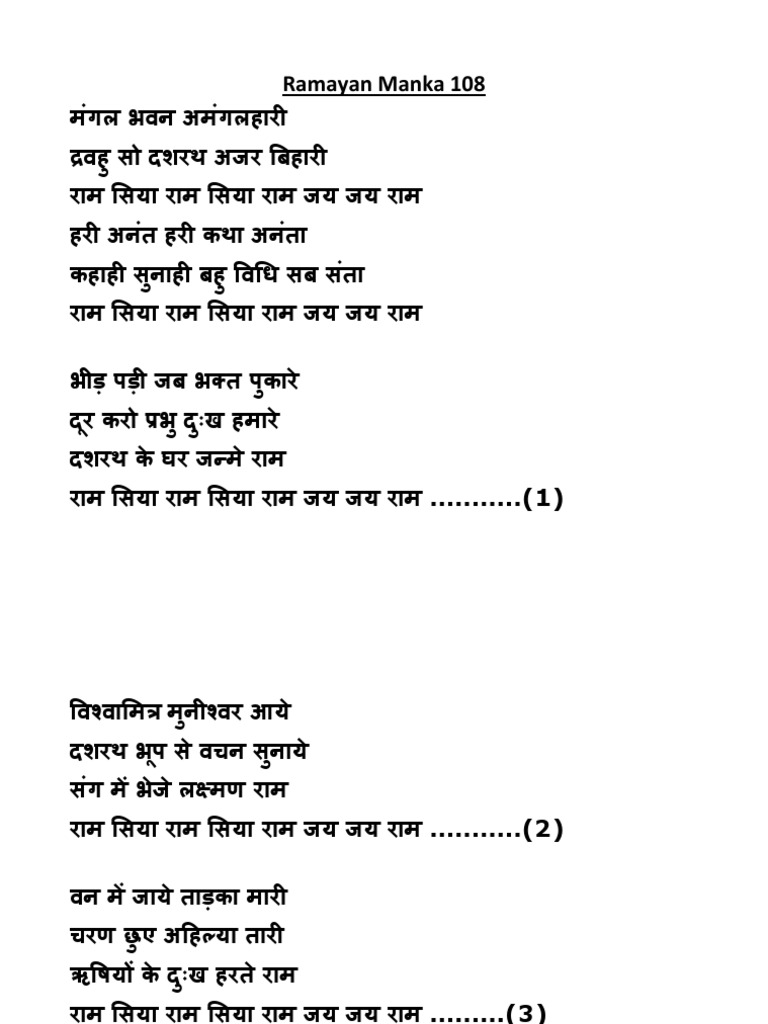 Ramayan Manka 108
मंगल भवन अमंगलहारी
द्रवहु सो दशरथ अजर बिहारी
राम सिया राम सिया राम जय जय राम
हरी अनंत हरी कथा अनंता
कहाही सुनाही बहु विधि सब संता
राम सिया राम सिया राम जय जय राम
भीड़ पड़ी जब भक्त पुकारे
दूर करो प्रभु दुःख हमारे
दशरथ के घर जन्मे राम
राम सिया राम सिया राम जय जय राम ...........(1)
विश्वामित्र मुनीश्वर आये
दशरथ भूप से वचन सुनाये
संग में भेजे लक्ष्मण राम
राम सिया राम सिया राम जय जय राम ...........(2)
वन में जाये ताड़का मारी
चरण छुए अहिल्या तारी
ऋषियों के दुःख हरते राम
राम सिया राम सिया राम जय जय राम .........(3)